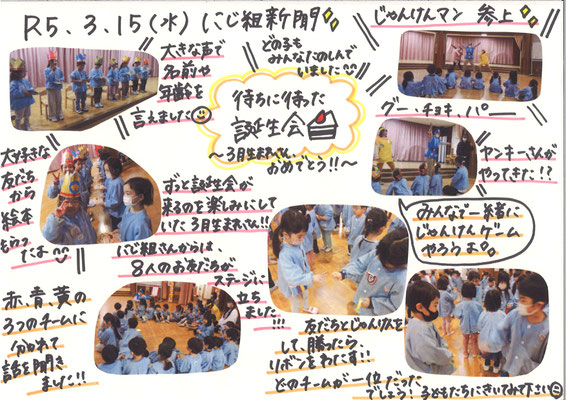 R5.3.15(水)にじ組新聞
大きな声で
名前や
年齢を
言えました
どの子も
みんなたのしんで
いました
待ちに待った
誕生会
～3月生まれさん、
おめでとう!!～
じゃんけんマン 参上
グー、チョキ、パー
ヤンキーさんが
やってきた!?
みんなで一緒に
じゃんけんゲーム
やろうぜ。
大好きな
友だち
から
絵本
もらっ
たよ
ずっと誕生会が
来るのを楽しみにして
いた3月生まれさん!!
にじ組さんからは、
8人のお友だちが
ステージに
立ち
ました
!!!
赤、青、黄の
3つのチームに
分かれて
話を聞き
ました!!
友だちとじゃんけんを
して、勝ったら
リボンをわたす!!
どのチームが一位だった
でしょう!子どもたちにきいてみて下さい